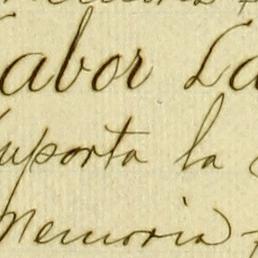 abor La
mporta la
Memoria